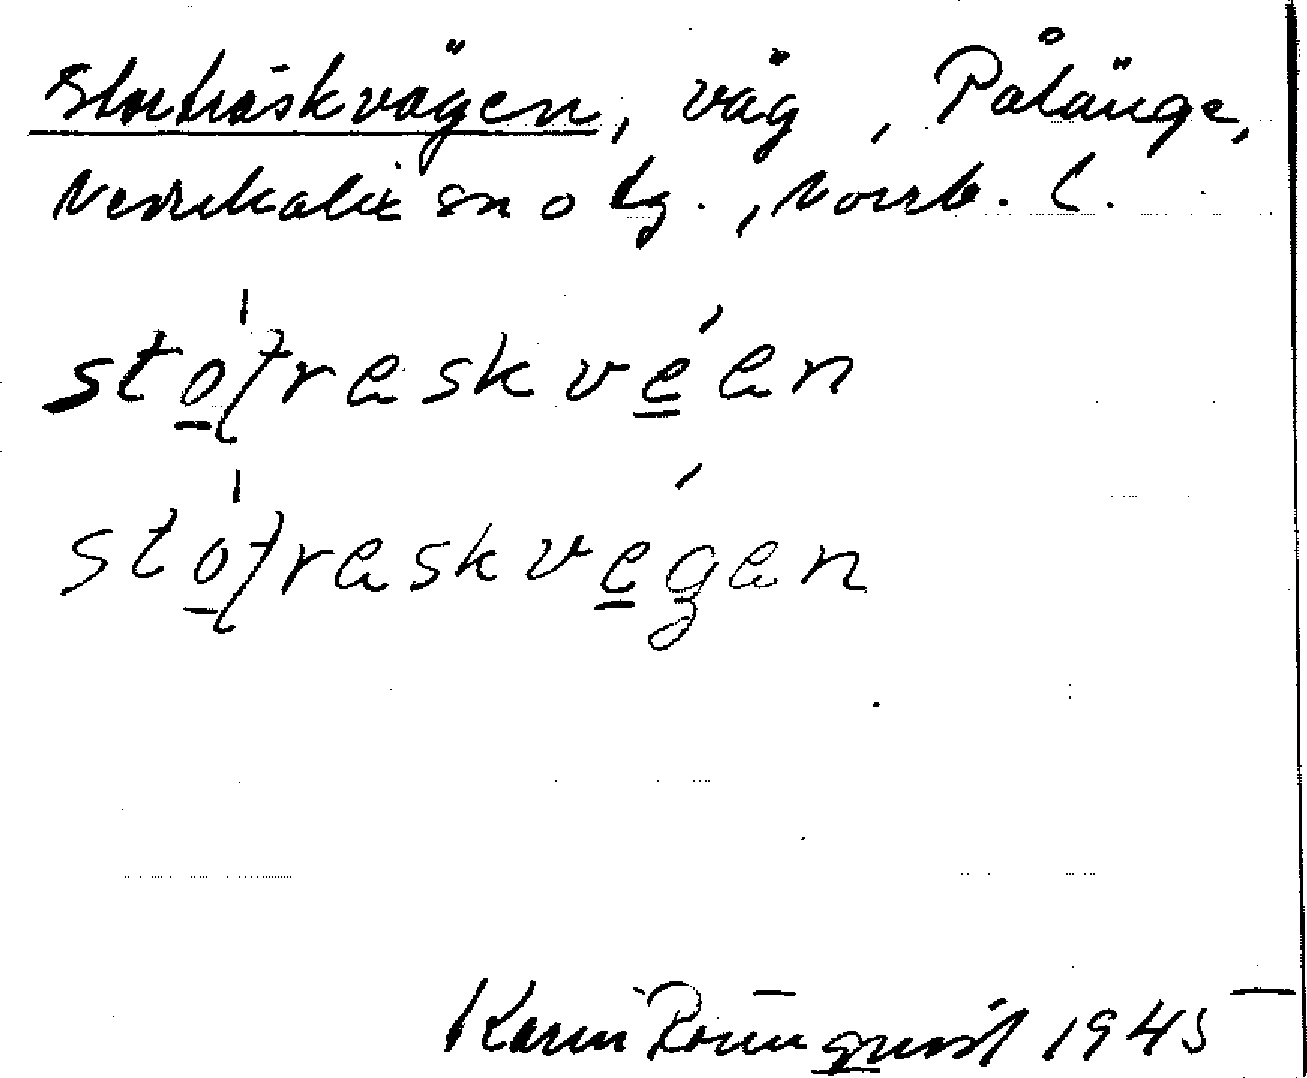 Storträskvägen, väg, Pålänge,
Nederkalix sn o tg., Norrb. l.
sto̲ʃtraskve̲en
sto̲ʃtraskve̲gen
Karin Rönnquist 1945